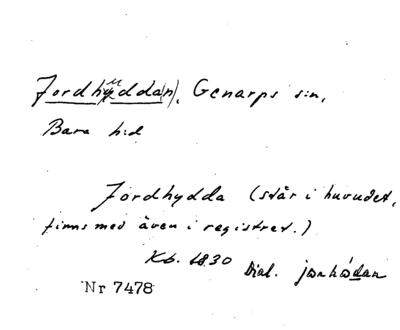 Jordhyddan), Genarps s:n,
Bara h:d
Jordhydda (står i huvudet,
finns med även i registret.)
Kb. 1830 Dial.
Nr 7478